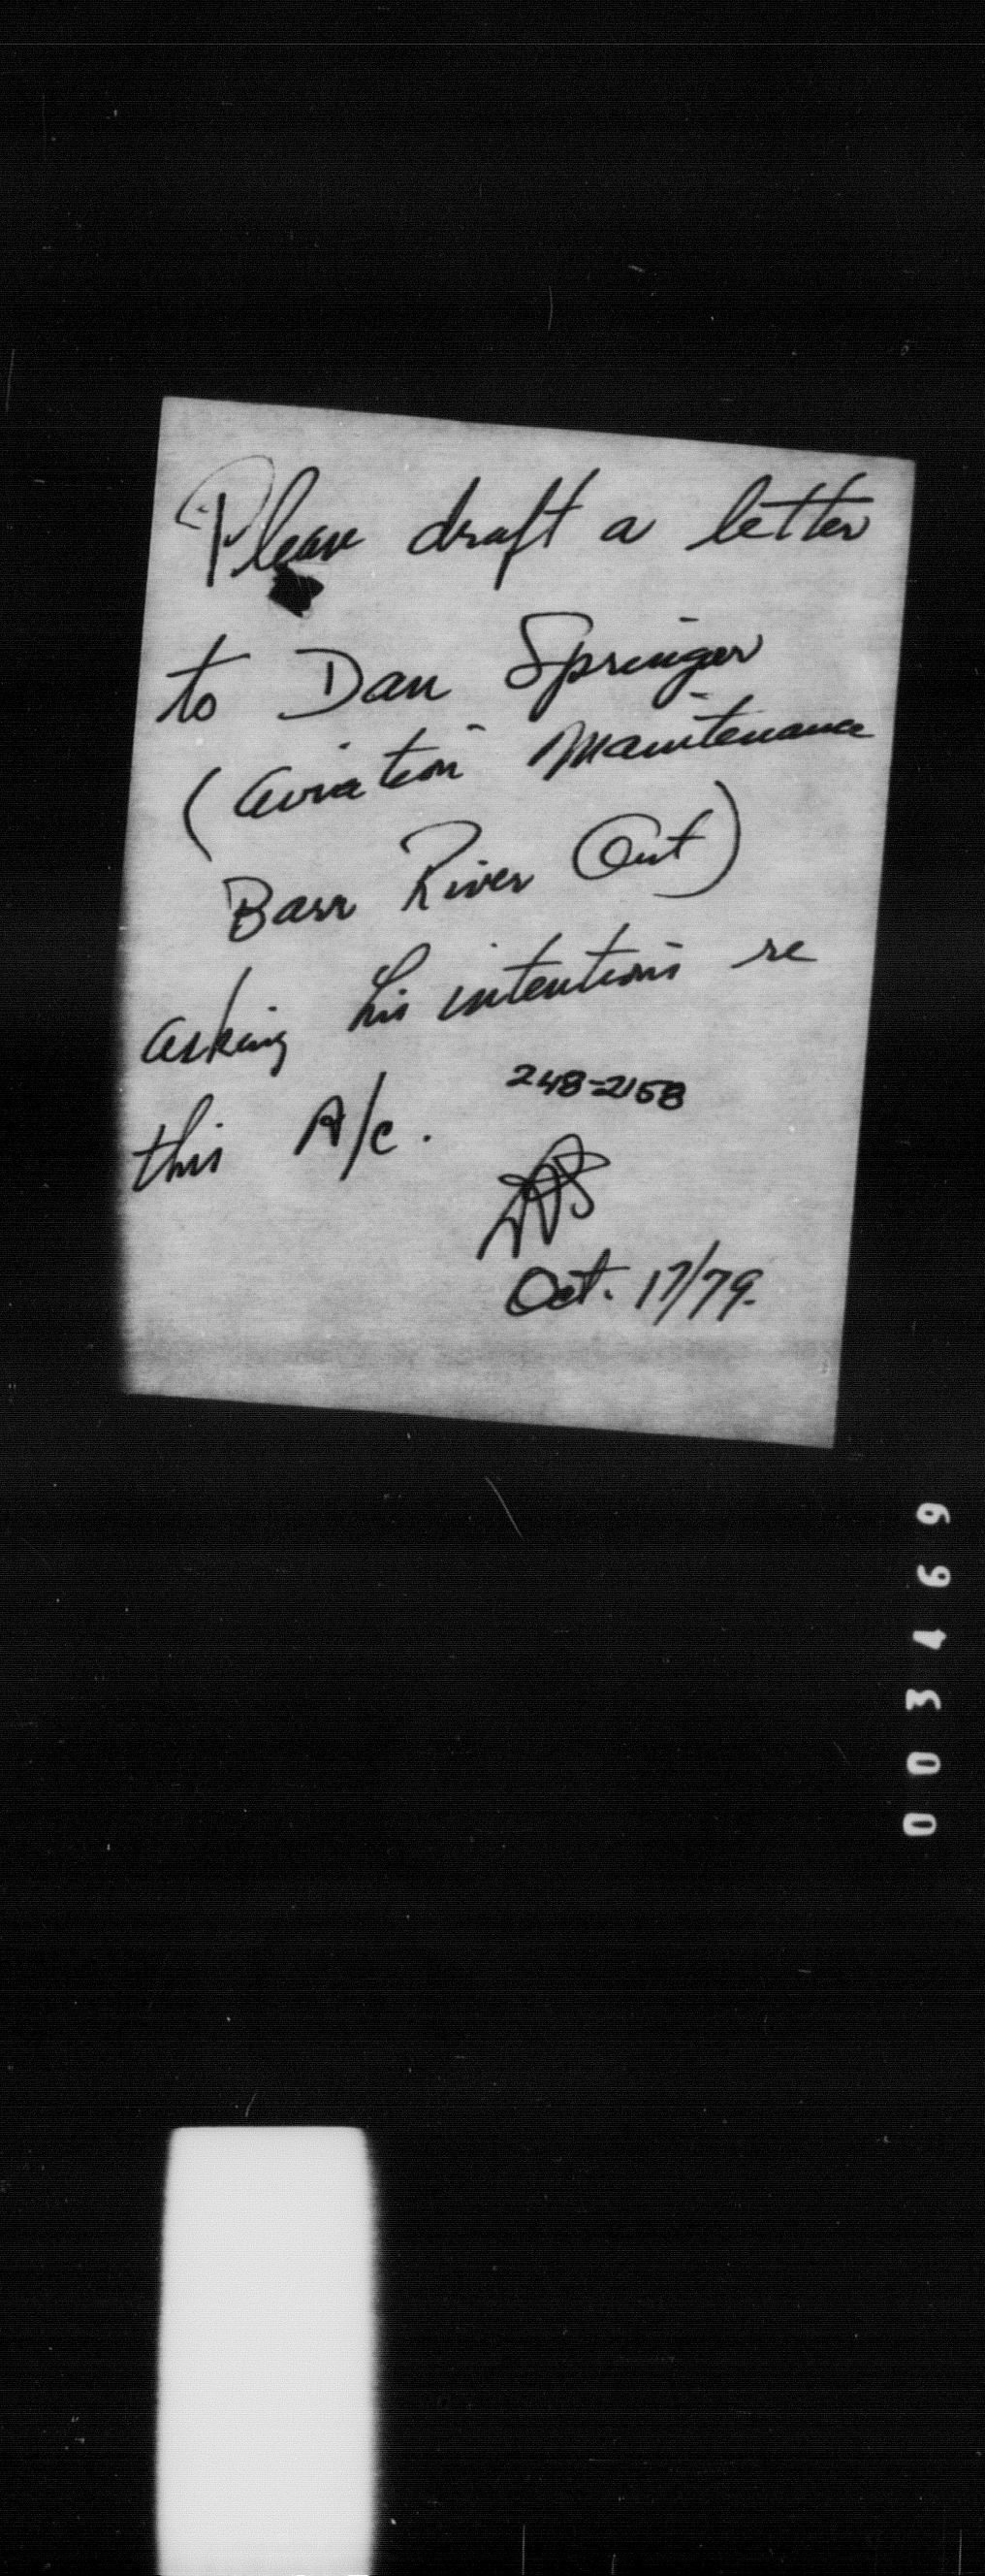 Please draft a letter
to Dan Springer
(Aviation Maintenance
Barr River Ont)
asking his intentions re
this A/c.
248-2158
Oct. 17/79.
003469